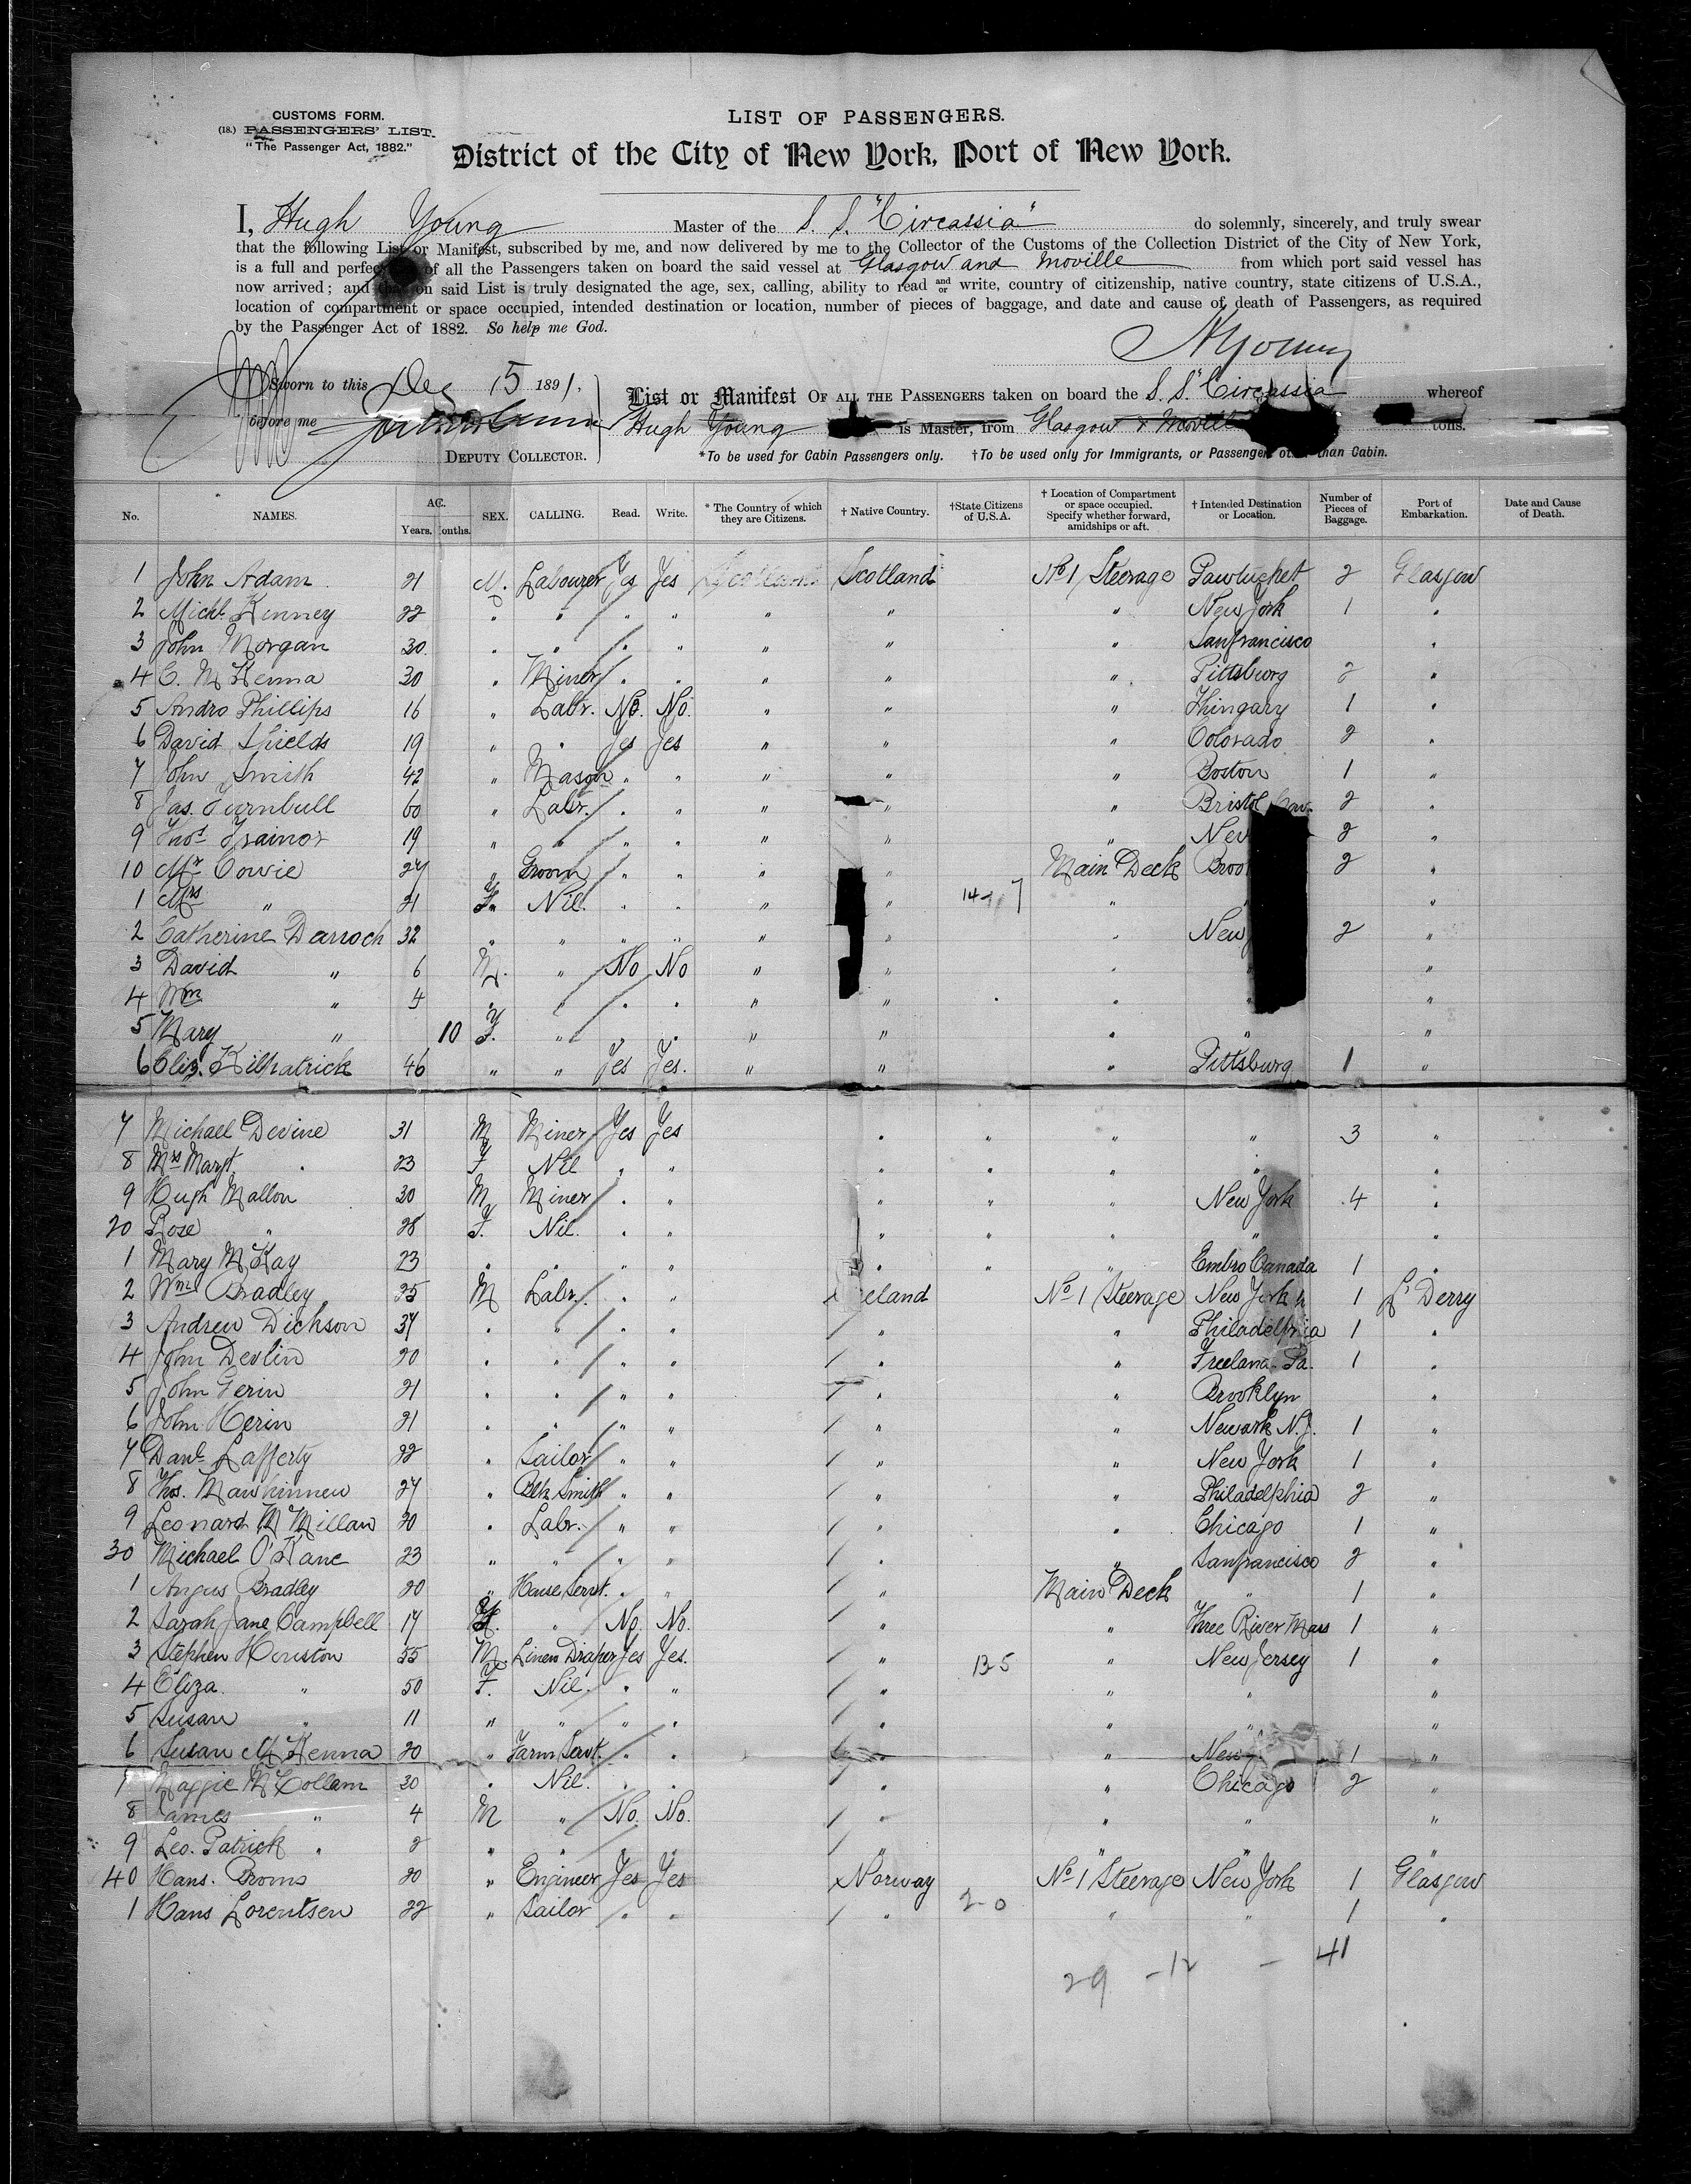 CUSTOMS FORM.
(18.) PASSENGERS' LIST.
"The Passenger Act, 1882."
LIST OF PASSENGERS.
District of the City of New York, Port of New York.
I, Hugh Young Master of the S. S. "Circassia" do solemnly, sincerely, and truly swear
that the following List or Manifest, subscribed by me, and now delivered by me to the Collector of the Customs of the Collection District of the City of New York,
is a full and perfect of all the Passengers taken on board the said vessel at Glasgow and Moville from which port said vessel has
now arrived; and that on said List is truly designated the age, sex, calling, ability to read and or write, country of citizenship, native country, state citizens of U.S.A.,
location of compartment or space occupied, intended destination or location, number of pieces of baggage, and date and cause of death of Passengers, as required
by the Passenger Act of 1882. So help me God.
H Young
Sworn to this Dec 15 1891.
before me
DEPUTY COLLECTOR.
List or Manifest OF ALL THE PASSENGERS taken on board the S. S. "Circassia whereof
Hugh Young is Master, from Glasgow & Moville tons.
*To be used for Cabin Passengers only. †To be used only for Immigrants, or Passengers other than Cabin.
No. NAMES. AG. Years. onths. SEX. CALLING. Read. Write. * The Country of which they are Citizens. † Native Country. †State Citizens of U.S.A. † Location of Compartment or space occupied. Specify whether forward, amidships or aft. † Intended Destination or Location. Number of Pieces of Baggage. Port of Embarkation. Date and Cause of Death.
1 John Adam 21 M. Labourer Yes Yes Scotland Scotland No 1 Steerage Pawtucket 2 Glasgow
2 Michl. Kinney 22 " " " " " " " New York 1 "
3 John Morgan 30 " " " " " " " Sanfrancisco "
4 C. McKenna 30 " Miner " " " " " Pittsburg 2 "
5 Andro Phillips 16 " Labr. No. No. " " " Hungary 1 "
6 David Shields 19 " " Yes Yes " " " Colorado 2 "
7 John Smith 42 " Mason " " " " " Boston 1 "
8 Jas. Turnbull 60 " Labr. " " " " " Bristol 2 "
9 Thos Trainor 19 " " " " " " " New 2 "
10 Mr Cowie 24 " Groom " " " " Main Deck Broo 2 "
1 Mrs " 21 F. Nil. " " " " 14-7 " " "
2 Catherine Darroch 32 " " " " " " " New 2 "
3 David " 6 M. " No No " " " " "
4 Wm " 4 " " " " " " " " "
5 Mary " 10 F. " " " " " " " "
6 Eliz. Kilpatrick 46 " " Yes Yes. " " " Pittsburg 1 "
7 Michael Devine 31 M Miner Yes Yes " " " " 3 "
8 Mrs Margt. " 23 F Nil " " " " " " "
9 Hugh Mallon 30 M Miner " " " " " New York 4 "
20 Rose " 28 F. Nil. " " " " " "
1 Mary McKay 23 " " " " " " " Embro Canada 1 "
2 Wm Bradley 25 M Labr. " " eland No 1 Steerage New York 1 L'Derry
3 Andrew Dickson 34 " " " " " " Philadelphia 1 "
4 John Devlin 20 " " " " " " Freeland Pa. 1 "
5 John Gerin 21 " " " " " " Brooklyn "
6 John Kerin 21 " " " " " " Newark N.J. 1 "
7 Danl. Lafferty 22 " Sailor " " " " New York 1 "
8 Thos. Mawhinnew 24 " Blk Smith " " " " Philadelphia 2 "
9 Leonard McMillan 20 " Labr. " " " " Chicago 1 "
30 Michael O'Kane 23 " " " " " " Sanfrancisco 2 "
1 Angus Bradley 20 " House Servt. " " " Main Deck " 1 "
2 Sarah Jane Campbell 17 F. " No. No. " " Three River Mass 1 "
3 Stephen Houston 55 M. Linen Draper Yes Yes. " 12-5 " New Jersey 1 "
4 Eliza " 50 F. Nil. " " " " " "
5 Susan " 11 " " " " " " " "
6 Susan McKenna 20 " Farm Servt. " " " " New 1 "
7 Maggie McCollam 30 " Nil. " " " " Chicago 2 "
8 James " 4 M " No. No. " " " "
9 Leo. Patrick " 2 " " " " "
40 Hans. Broms 20 " Engineer Yes Yes Norway No 1 Steerage New York 1 Glasgow
1 Hans Lorentsen 22 " Sailor " " " 2-0 " " 1 "
29 - 12 - 41